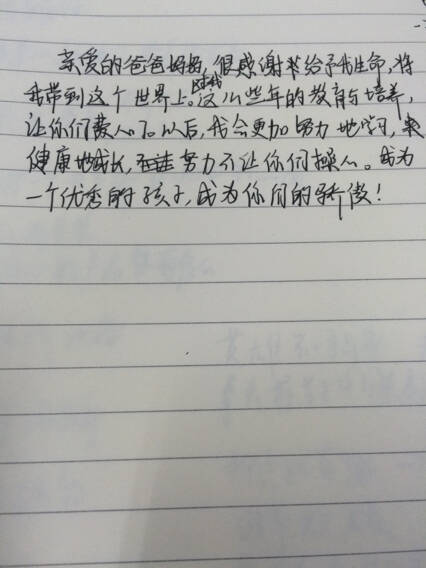 亲爱的爸爸妈妈，很感谢你给予我生命，将
我带到这个世界上。这么些年对我的教育与培养，
让你们费心了。以后，我会更加努力地学习，
健康地成长，努力不让你们操心。成为
一个优秀的孩子，成为你们的骄傲！